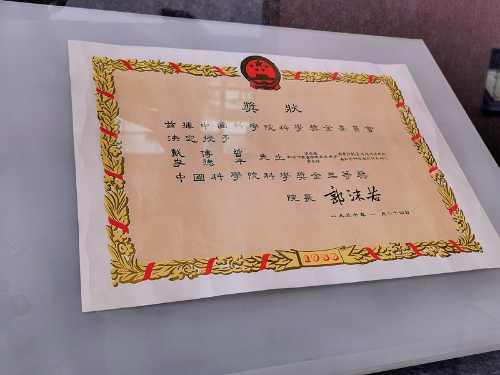 獎狀
茲據中國科學院科學獎金委員會
決定授予
戴傳曾
李德平 先生
中國科學院科學獎金三等獎
院長 郭沫若
一九五七年一月二十四日
1956